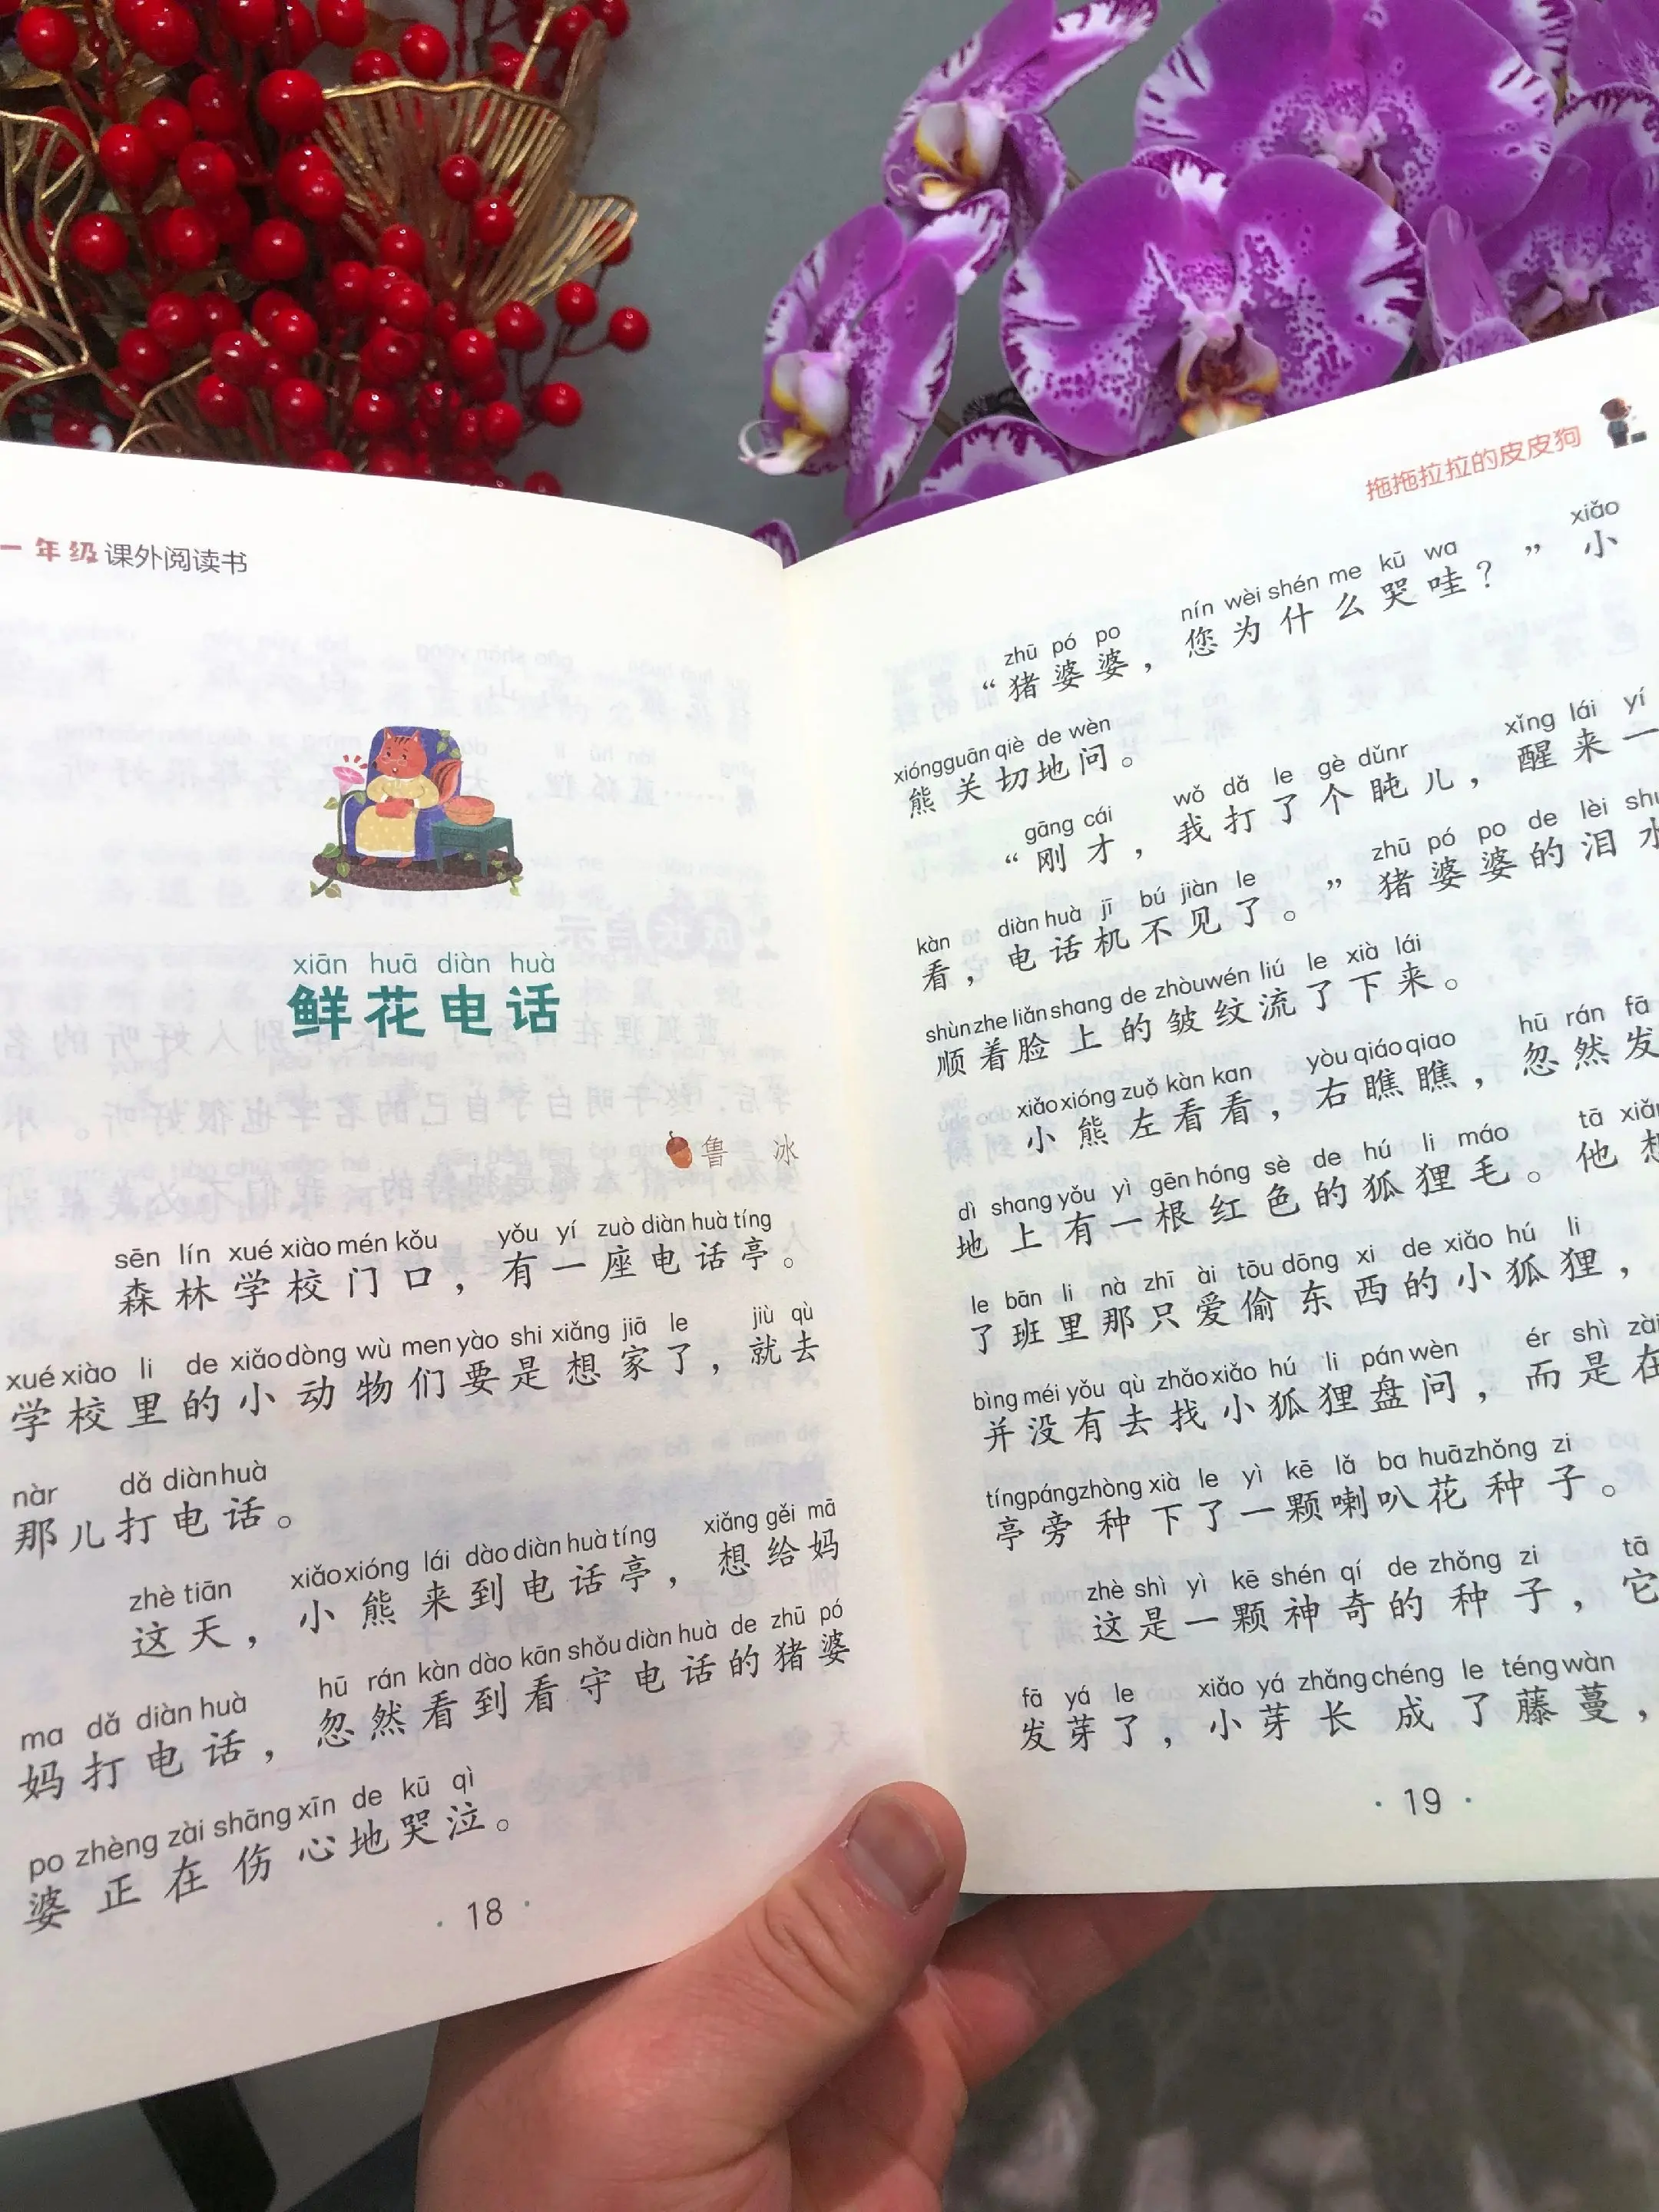 一年级课外阅读书
xiān huā diàn huà
鲜花电话
鲁 冰
sēn lín xué xiào mén kǒu yǒu yí zuò diàn huà tíng
森林学校门口，有一座电话亭。
xué xiào li de xiǎo dòng wù men yào shi xiǎng jiā le jiù qù
学校里的小动物们要是想家了，就去
nàr dǎ diàn huà
那儿打电话。
zhè tiān xiǎo xióng lái dào diàn huà tíng xiǎng gěi mā
这天，小熊来到电话亭，想给妈
ma dǎ diàn huà hū rán kàn dào kān shǒu diàn huà de zhū pó
妈打电话，忽然看到看守电话的猪婆
po zhèng zài shāng xīn de kū qì
婆正在伤心地哭泣。
18
拖拖拉拉的皮皮狗
zhū pó po nín wèi shén me kū wa xiǎo
“猪婆婆，您为什么哭哇？”小
xióng guān qiè de wèn
熊关切地问。
gāng cái wǒ dǎ le gè dǔnr xǐng lái yí
“刚才，我打了个盹儿，醒来一
kàn diàn huà jī bú jiàn le zhū pó po de lèi
看，电话机不见了。”猪婆婆的泪
shùn zhe liǎn shang de zhòu wén liú le xià lái
顺着脸上的皱纹流了下来。
xiǎo xióng zuǒ kàn kan yòu qiáo qiao hū rán fā
小熊左看看，右瞧瞧，忽然发
dì shang yǒu yì gēn hóng sè de hú li máo tā
地上有一根红色的狐狸毛。他想
le bān li nà zhī ài tōu dōng xi de xiǎo hú li
了班里那只爱偷东西的小狐狸，
bìng méi yǒu qù zhǎo xiǎo hú li pán wèn ér shì zài
并没有去找小狐狸盘问，而是在
tíng páng zhòng xià le yì kē lǎ ba huā zhǒng zi
亭旁种下了一颗喇叭花种子。
zhè shì yì kē shén qí de zhǒng zi tā
这是一颗神奇的种子，它
fā yá le xiǎo yá zhǎng chéng le téng wàn
发芽了，小芽长成了藤蔓，
19